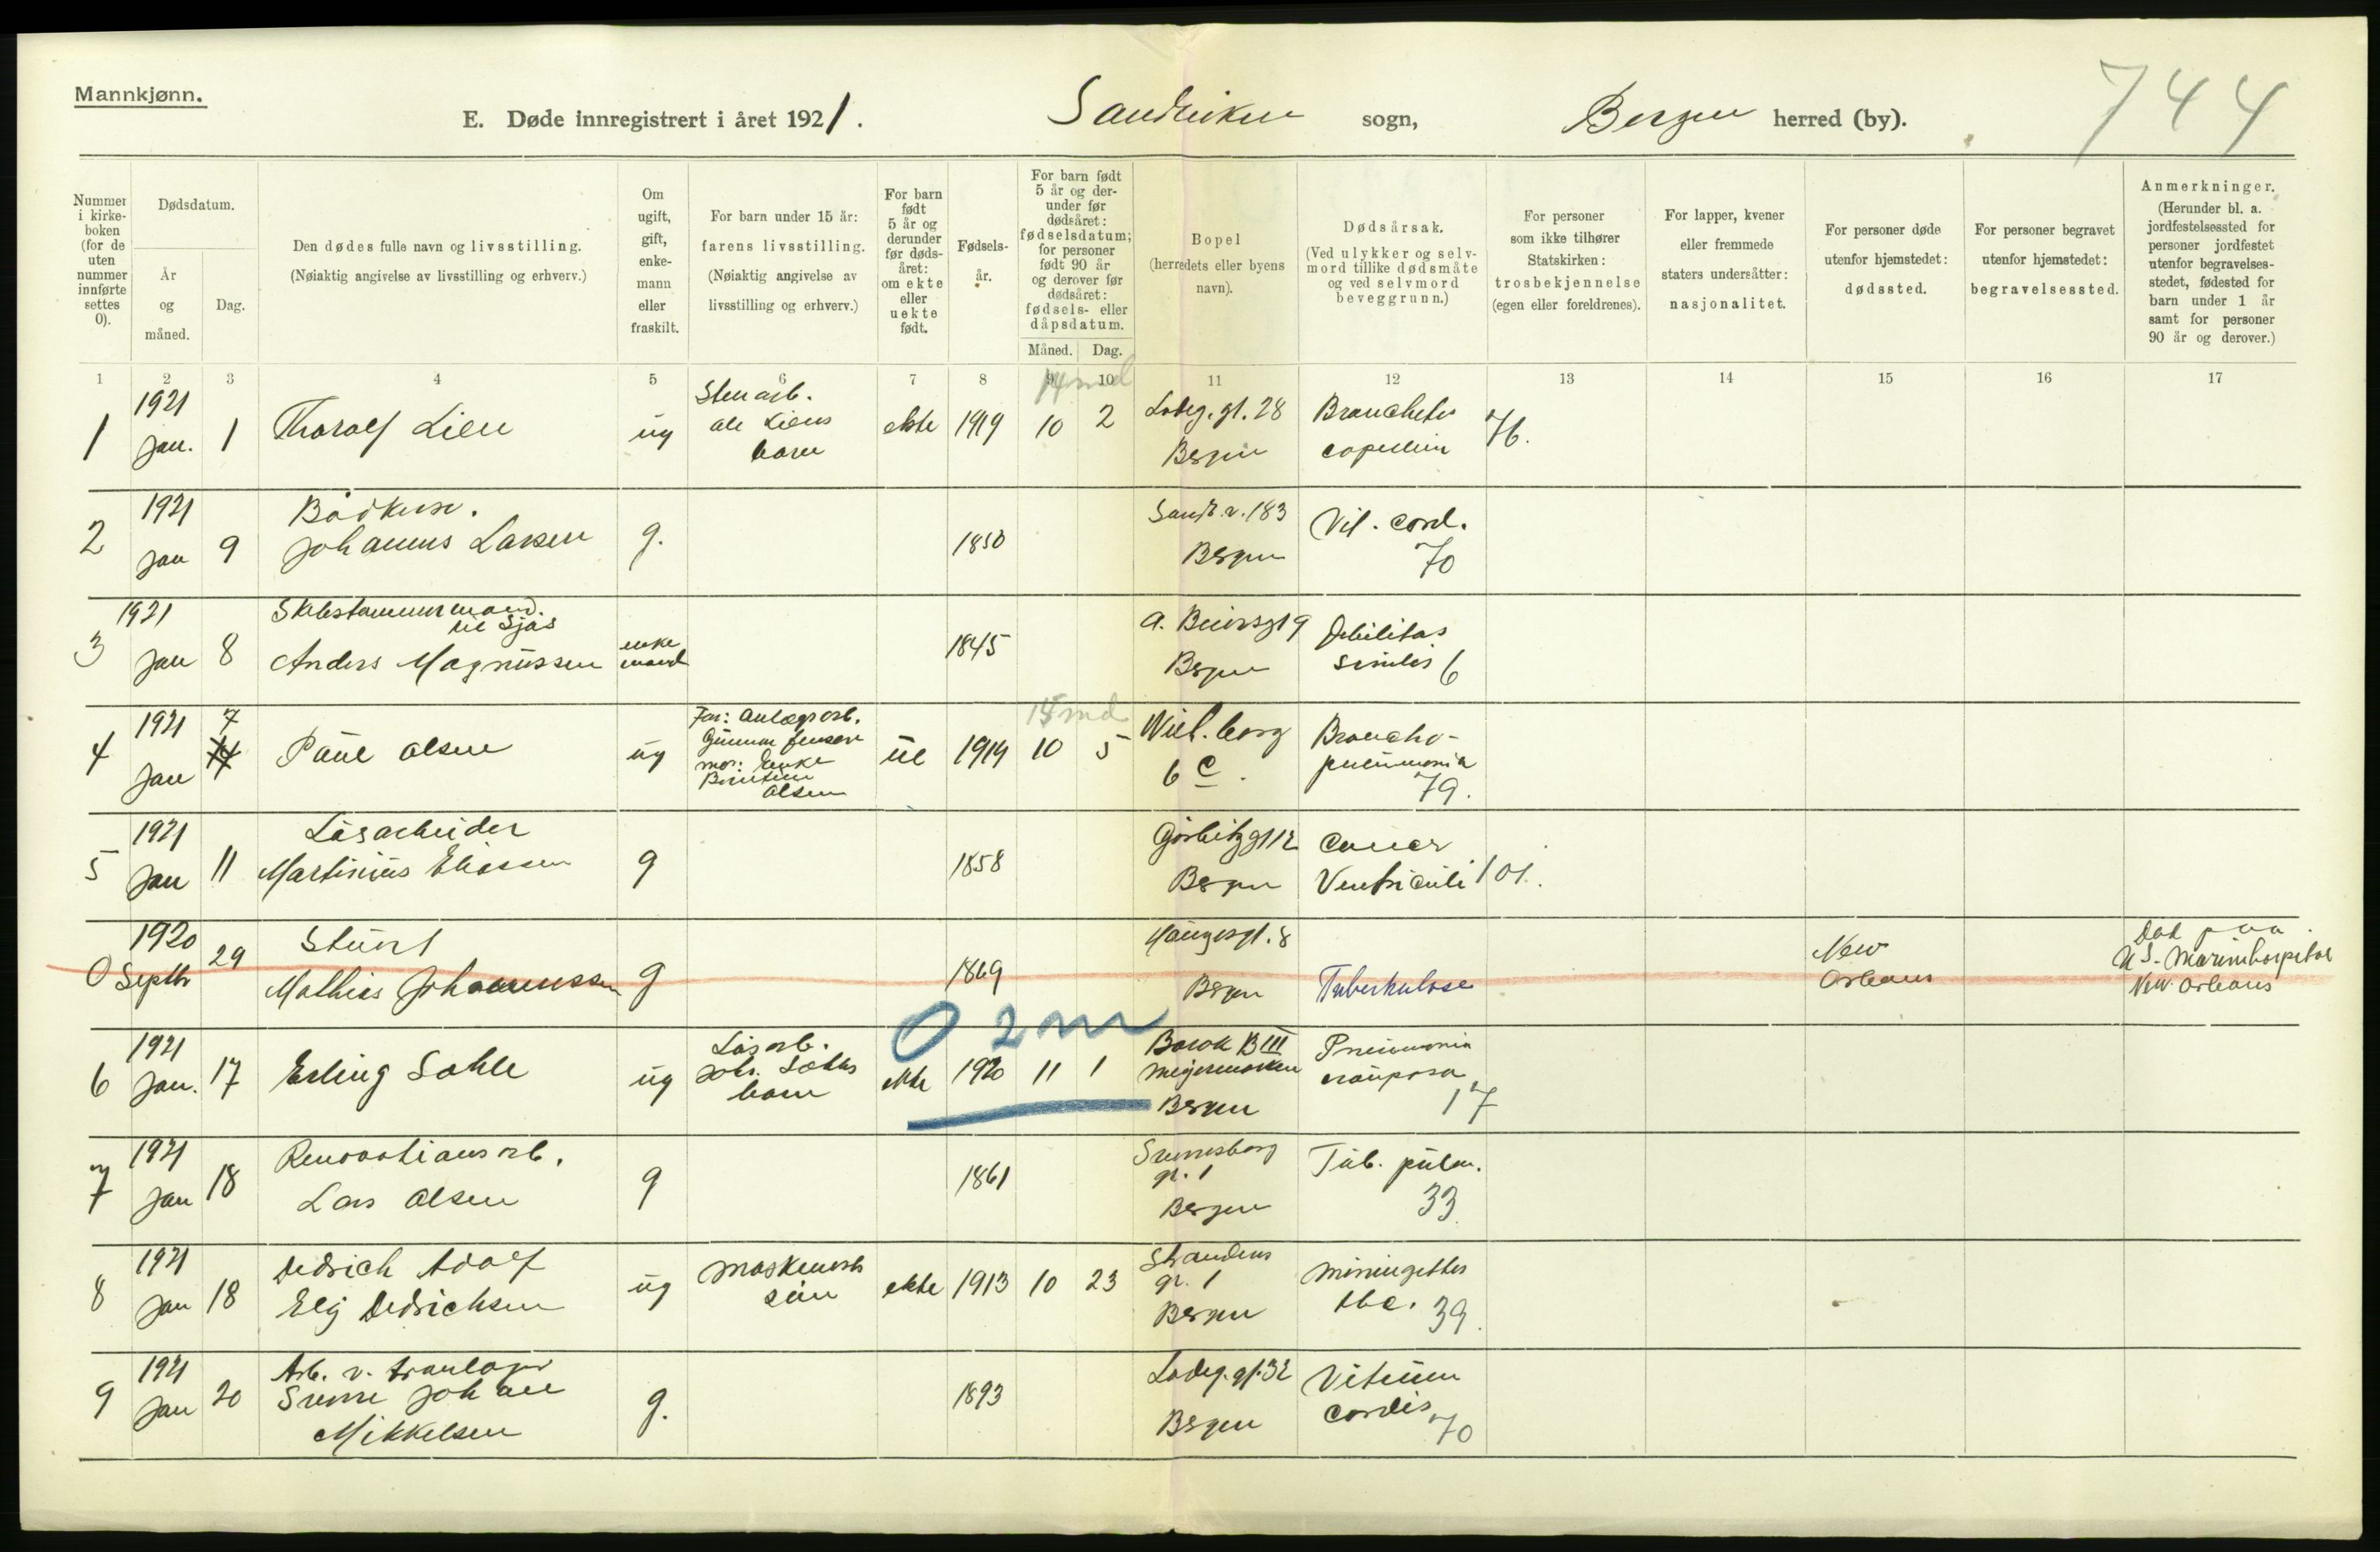 Mannkjønn.
E. Døde innregistrert i året 1921. Sandviken sogn, Bergen herred (by). 744
Nummer i kirkeboken (for de uten nummer innførte settes 0).
Dødsdatum.
År og måned.
Dag.
Den dødes fulle navn og livsstilling.
(Nøiaktig angivelse av livsstilling og erhverv.)
Om ugift, gift, enkemann eller fraskilt.
For barn under 15 år:
farens livsstilling.
(Nøiaktig angivelse av livsstilling og erhverv.)
For barn født 5 år og derunder før dødsåret: om ekte eller uekte født.
Fødselsår.
For barn født 5 år og derunder før dødsåret: fødselsdatum; for personer født 90 år og derover før dødsåret: fødsels- eller dåpsdatum.
Måned. Dag.
Bopel
(herredets eller byens navn).
Dødsårsak.
(Ved ulykker og selvmord tillike dødsmåte og ved selvmord beveggrunn.)
For personer som ikke tilhører Statskirken: trosbekjennelse (egen eller foreldrenes).
For lapper, kvener eller fremmede staters undersåtter: nasjonalitet.
For personer døde utenfor hjemstedet: dødssted.
For personer begravet utenfor hjemstedet: begravelsessted.
Anmerkninger.
(Herunder bl. a. jordfestelsessted for personer jordfestet utenfor begravelsesstedet, fødested for barn under 1 år samt for personer 90 år og derover.)
1 2 3 4 5 6 7 8 9 10 11 12 13 14 15 16 17
14 md
1 1921 Jan. 1 Thoralf Lien ug Stenarb. Ole Liens barn ekte 1919 10 2 Ladeg. gt. 28 Bergen 76.
2 1921 Jan 9 Bødker. Johannes Larsen g. 1850 Sandv. v. 183 Bergen Vit. cord. 70
3 1921 Jan 8 Skibstømmermand. Anders Magnussen enkemand 1845 Bergen Debilitas senilis 6
15 md
4 1921 Jan 7 14 Paul Olsen ug Far: Anlægsarb. Gunnar Jensen mor: Enke Olsen ue 1919 10 5 6 C. Broncho-pneumonia 79.
5 1921 Jan 11 Løsarbeider Martinius Eliassen g 1858 Gørbitzgt 12 Bergen Cancer Ventriculi 101.
0 1920 Septbr 29 Stuert Mathias Johannessen g 1869 Haugesgt. 8 Bergen Tuberkulose New Orleans Død paa U.S. Marinehospital New Orleans
0 2 m
6 1921 Jan. 17 Erling Sæhle ug Løsarb. Johs. Sæhles barn ekte 1920 11 1 Barak B III Meyermarken Bergen Pneumonia crouposa 17
7 1921 Jan 18 Renovationsarb. Lars Olsen g 1861 Sverresborg gt. 1 Bergen Tub. pulm. 33
8 1921 Jan 18 Dedrich Adolf Elij Dedrichsen ug Maskinarb søn ekte 1913 10 23 Strandens gt. 1 Bergen Miningettes tbc. 39.
9 1921 Jan 20 Arb. v. tranlager Sverre Johan Mikkelsen g. 1893 Ladeg. gt. 32 Bergen Vitium cordis 70